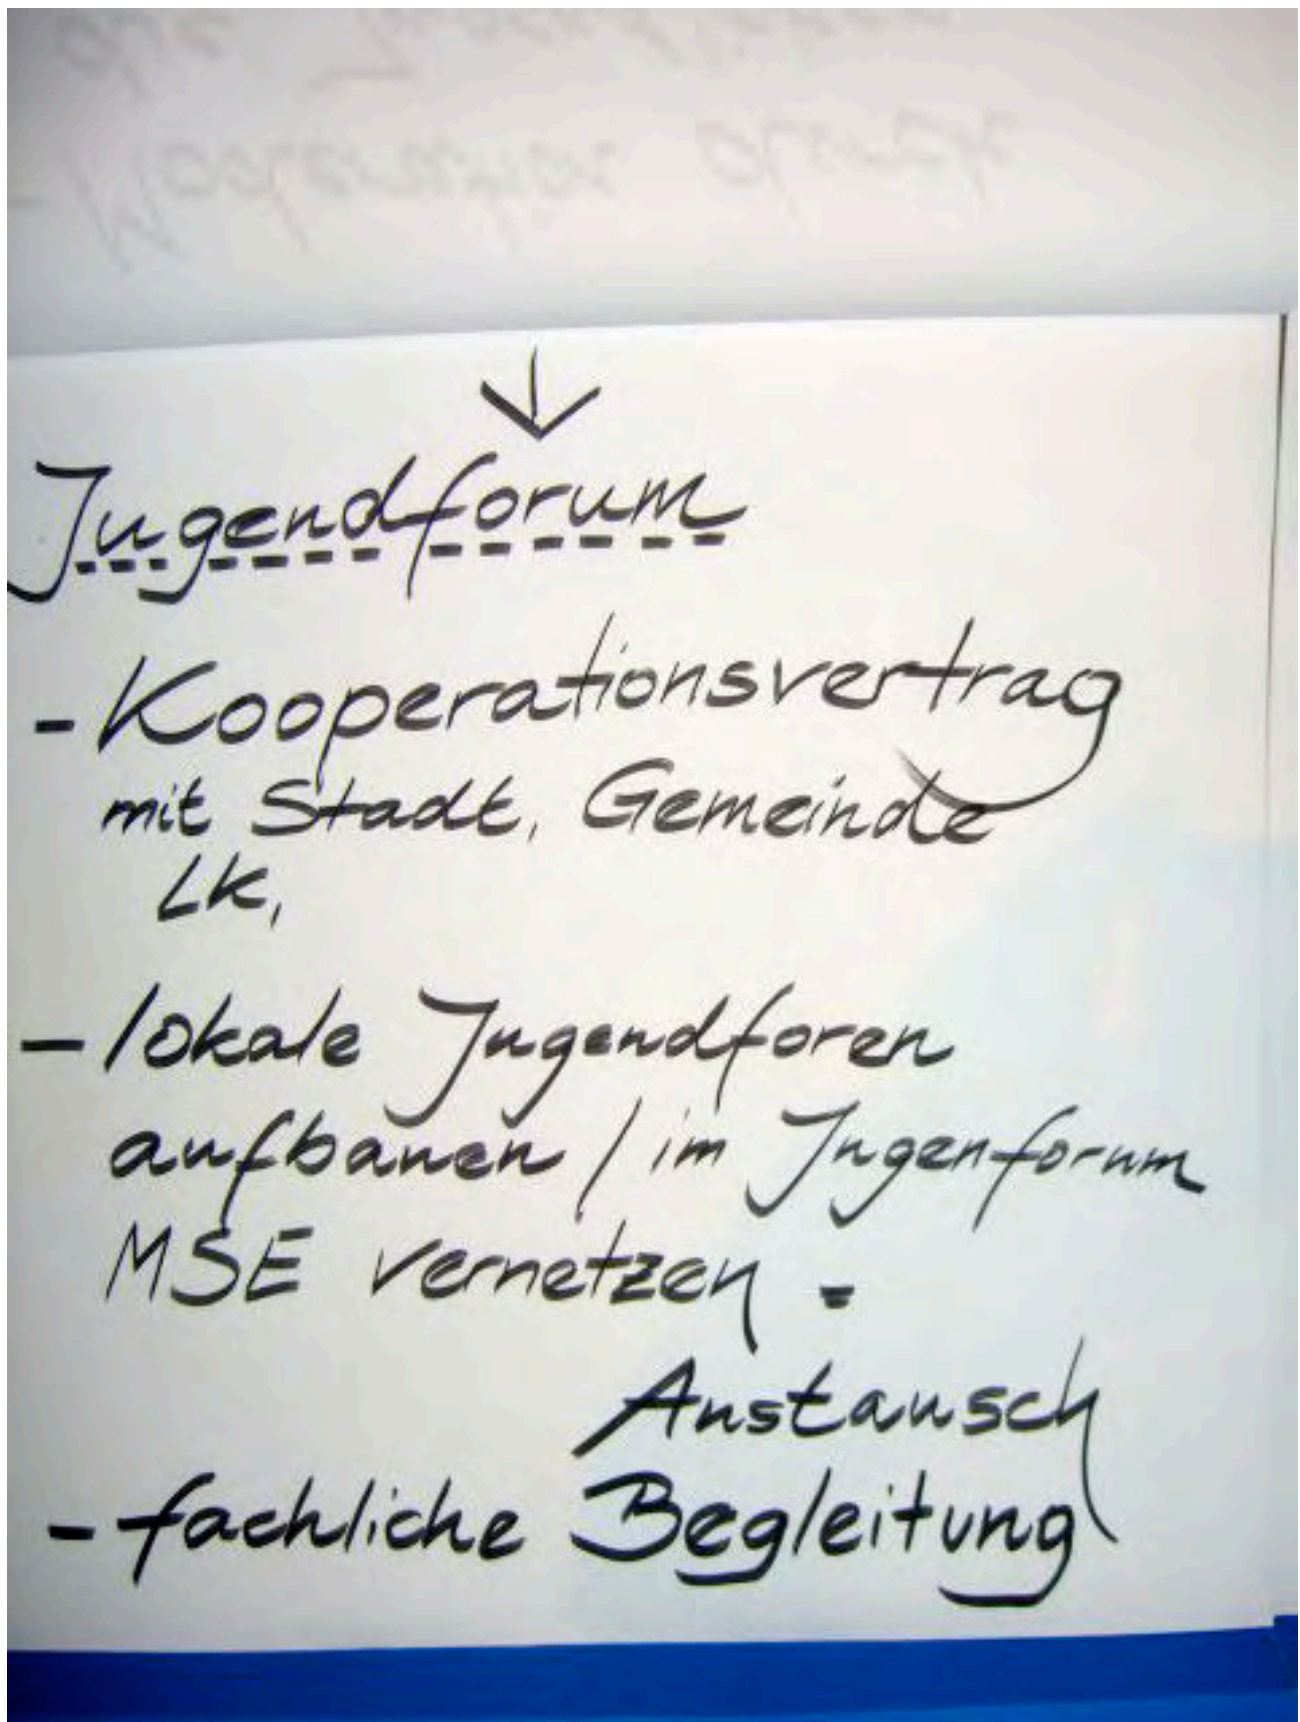 Jugendforum
- Kooperationsvertrag
mit Stadt, Gemeinde
LK,
- lokale Jugendforen
aufbauen / im Jugenforum
MSE vernetzen -
Austausch
- fachliche Begleitung